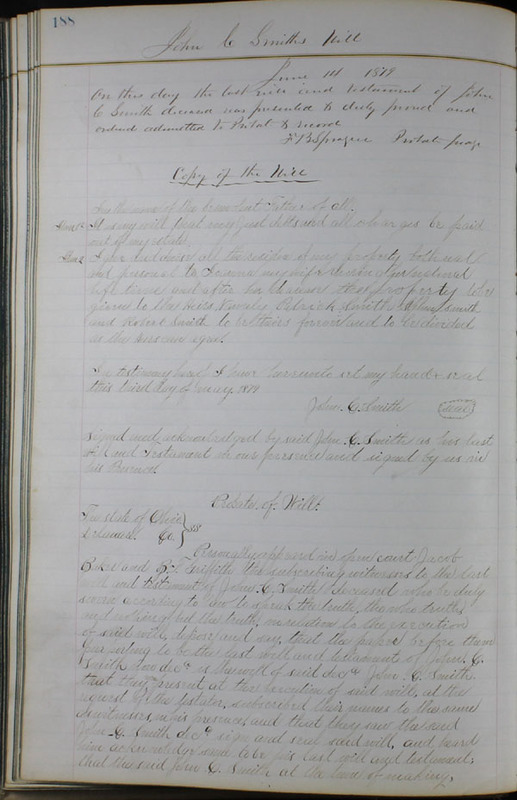 188
John C Smiths Will
June 14 1879
On this day the last will and testament of John
C Smith deceased was presented & duly proved and
ordered admitted to Probat & record
F B Sprague Probate Judge
Copy of the Will
In the name of the Benevolent Father of all.
Item 1st It is my will that my just debts and all charges be paid
out of my estate.
Item 2 I give and devise all the residue of my property both real
and personal to my wife during her natural
life time and after her decease that property to be
given to the heirs, Namely Patrick Smith Smith
and Robert Smith to be theirs forever and to be divided
as the heirs an equal
In testimony hereof I have hereunto set my hand & seal
this third day of May 1879
John. C. Smith (seal)
Signed and acknowledged by said John. C. Smith as his last
will and testament in our presence and signed by us in
his Presence.
Probate. of. Will.
The State of Ohio
Co. } SS
Personally appeared in open court Jacob
Baker and Griffith the subscribing witnesses to the last
will and testament of John. C. Smith deceased who being duly
sworn according to law to speak the truth, the whole truth,
and nothing but the truth, in relation to the execution
of said will, depose and say, that the paper before them
purporting to be the last will and testament of John. C.
Smith decd is the will of said decd John. C. Smith.
that they present at the execution of said will, at the
request of the testator, subscribed their names to the same
as witnesses, in his presence, and that they saw the said
John. C. Smith decd sign and seal said will, and heard
him acknowledge same to be his last will and testament,
that the said John C. Smith at the time of making,